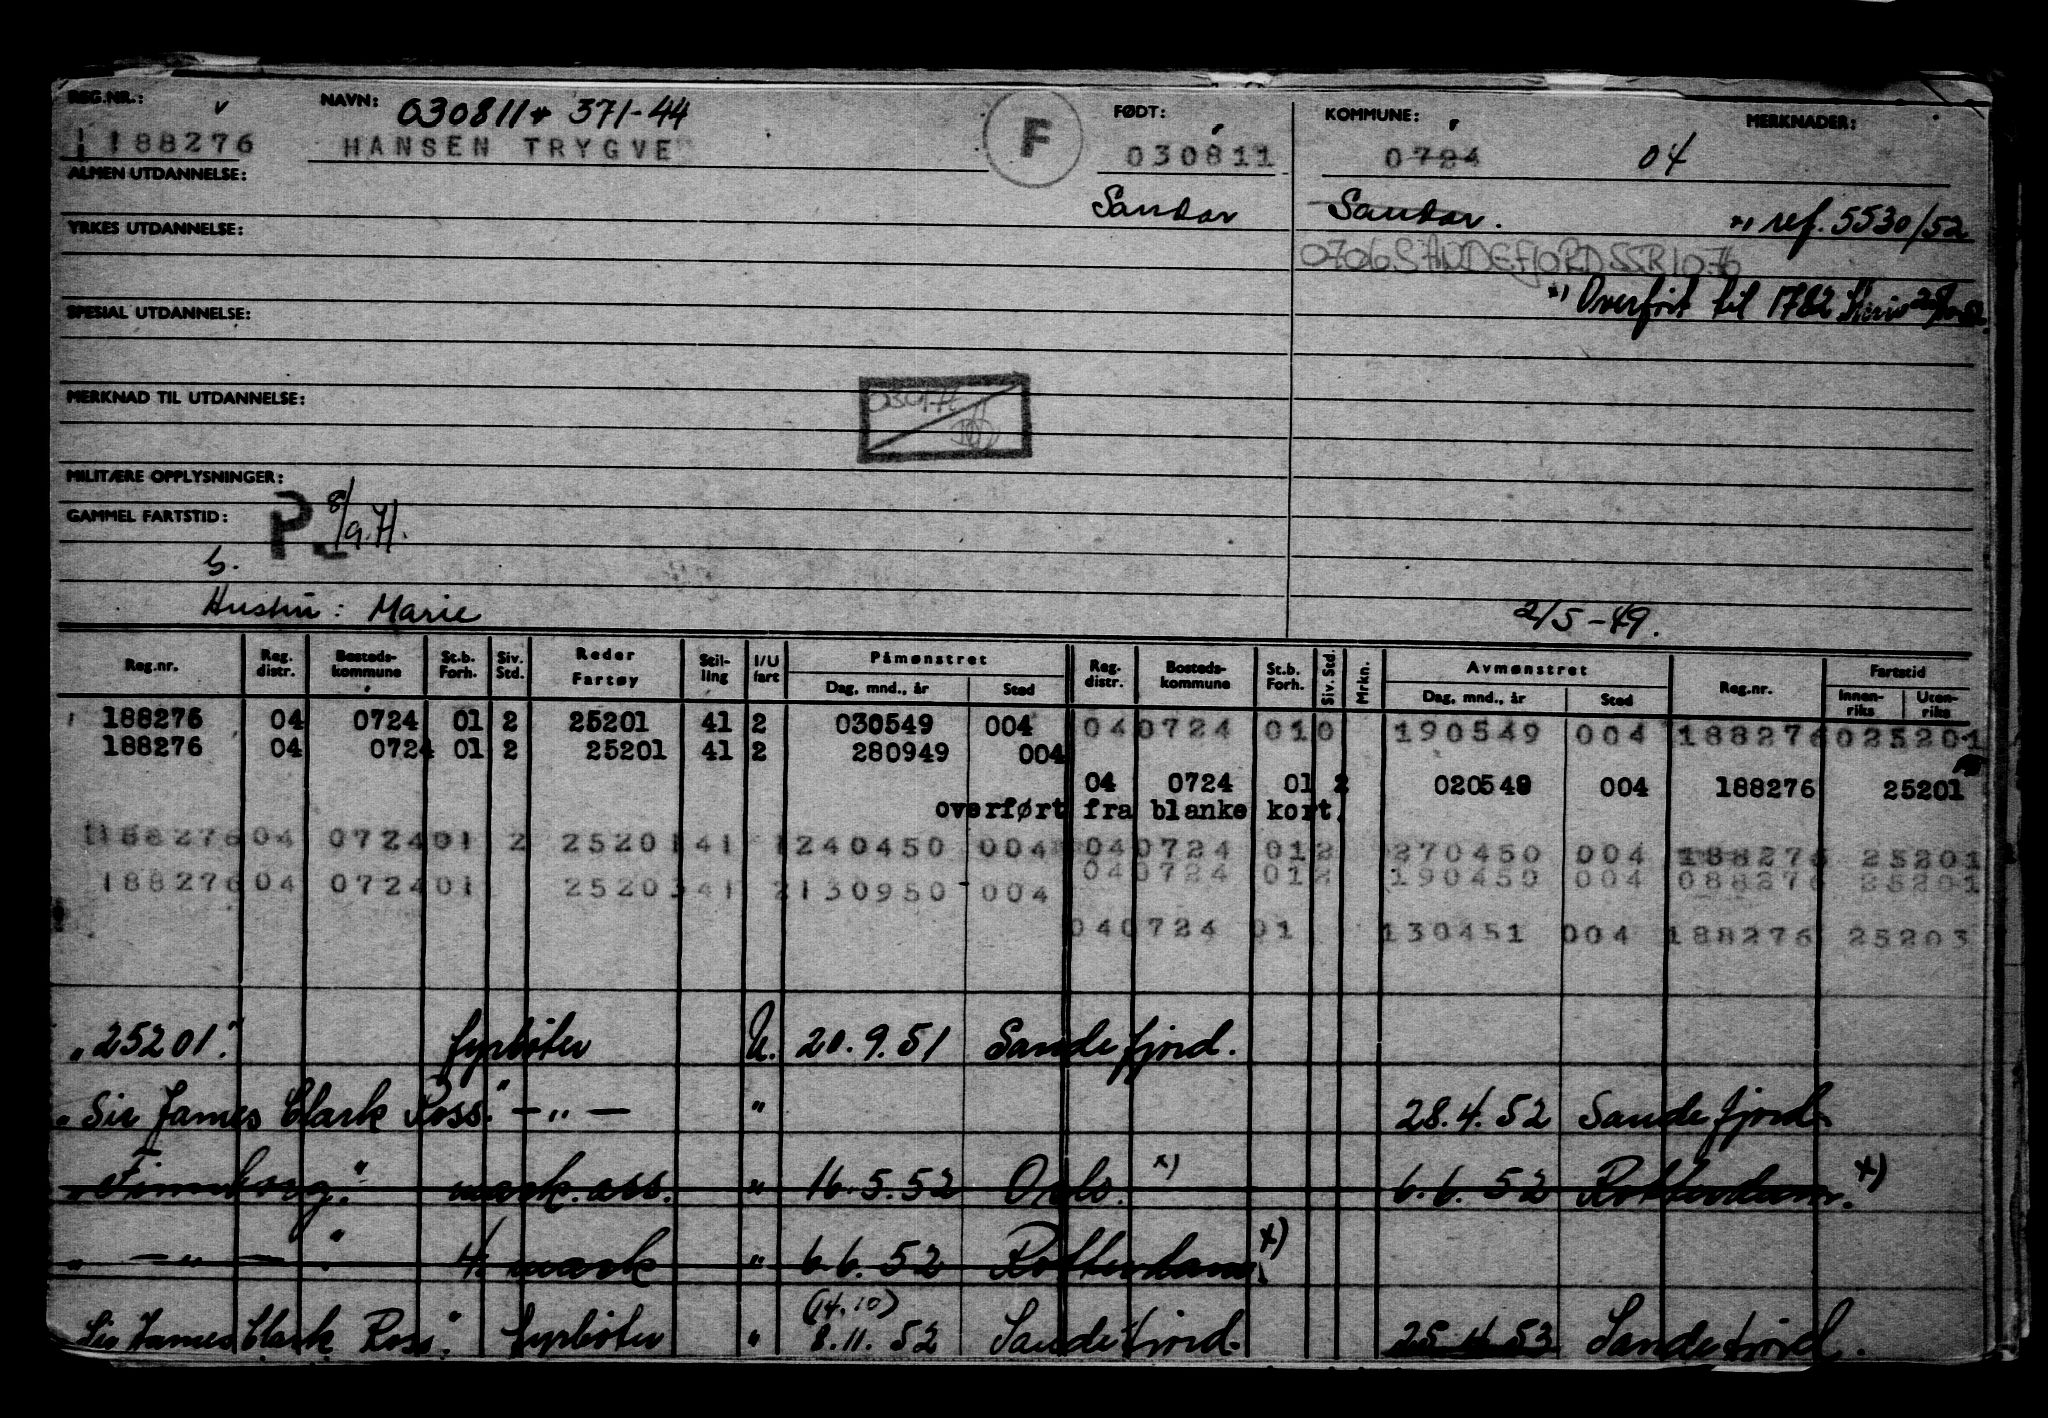 REG.NR.: NAVN: 030811 * 371-44 FØDT: KOMMUNE: MERKNADER:
188276 HANSEN TRYGVE F 030811 0724 04
ALMEN UTDANNELSE: Sandar Sandar. *) ref. 5530/52
YRKES UTDANNELSE:
0706 SANDEFJORD SSB 10 76
*) Overført til 1782
SPESIAL UTDANNELSE:
MERKNAD TIL UTDANNELSE:
MILITÆRE OPPLYSNINGER:
GAMMEL FARTSTID: P. 8/9.71.
S.
Hustru: Marie 2/5-49.
Reg.nr. Reg. distr. Bosteds-kommune St.b. Forh. Siv. Std. Reder Fartøy Stil-ling I/U fart Påmønstret Dag, mnd., år Sted Reg. distr. Bosteds-kommune St.b. Forh. Siv. Std. Mrkn. Avmønstret Dag, mnd., år Sted Reg.nr. Fartstid Innen-riks Uten-riks
188276 04 0724 01 2 25201 41 2 030549 004 04 0724 01 0 190549 004 188276 025201
188276 04 0724 01 2 25201 41 2 280949 004
04 0724 01 2 020549 004 188276 25201
overført fra blanke kort.
188276 04 0724 01 2 25201 41 1 240450 004 04 0724 01 2 270450 004 188276 25201
04 0724 01 2 190450 004 088276 25201
188276 04 0724 01 25203 41 2 130950 - 004
04 0724 01 130451 004 188276 25203
"25201." fyrbøter U. 20.9.51 Sandefjord.
"Sir James Clark Ross." - " - " 28.4.52 Sandefjord
"Finnborg." mask. ass. " 16.5.52 Oslo. x) 6.6.52 Rotterdam. x)
" - " - " 4. mask " 6.6.52 Rotterdam x)
(14.10)
"Sir James Clark Ross." fyrbøter " 8.11.52 Sandefjord. 25.4.53 Sandefjord.